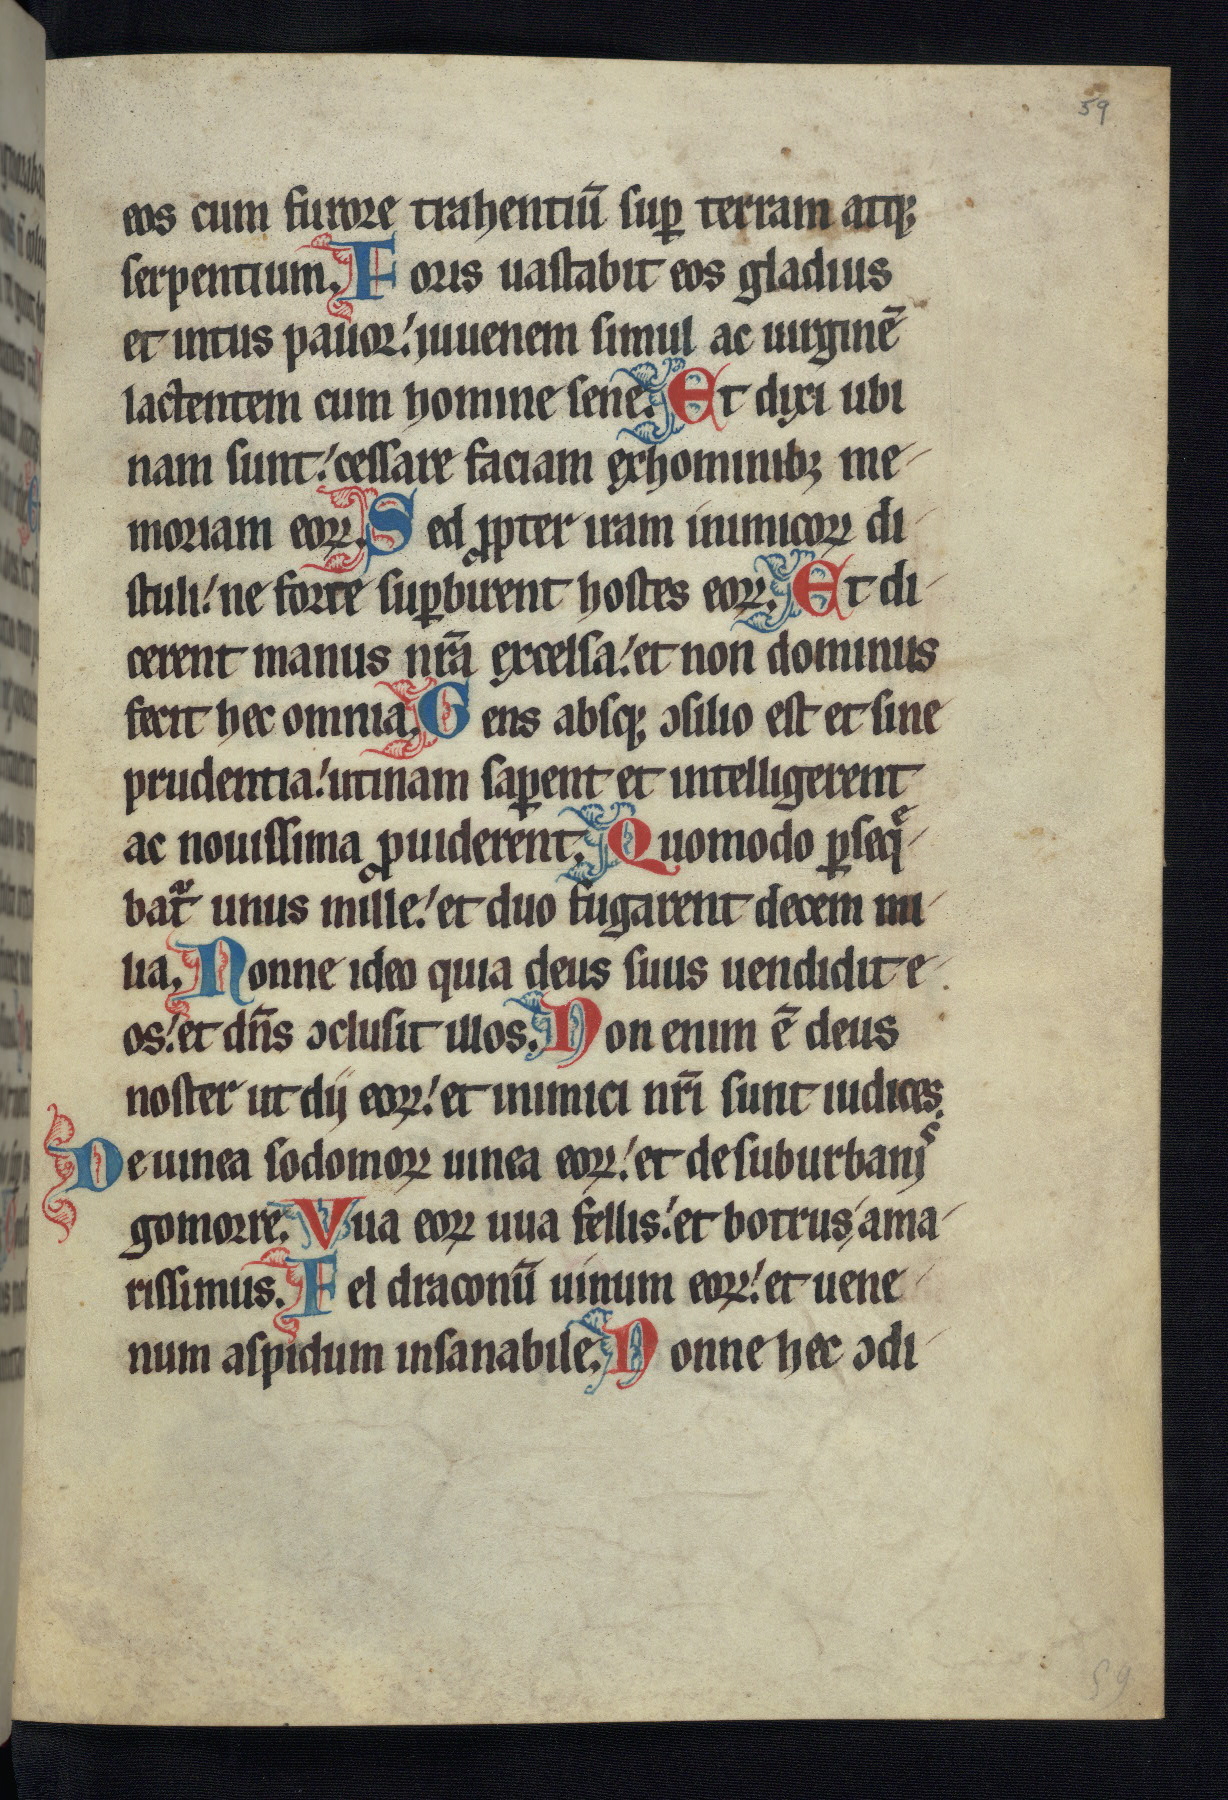 59
eos cum furore trahentiū sup̲ terram atq;
serpentium. Foris uastabit eos gladius
et intus pauor: iuuenem simul ac uirginē
lactentem cum homine sene. Et dixi ubi
nam sunt: cessare faciam ex hominib; me-
moriam eoꝝ. Sed ꝓpter iram inimicoꝝ di-
stuli: ne forte suꝑbirent hostes eoꝝ. Et di-
cerent manus nr̄a excelsa: et non dominus
fecit hec omnia. Gens absq; ꝯsilio est et sine
prudentia: utinam saꝑent et intelligerent
ac nouissima ꝓuiderent. Quomodo ꝑseq̄-
bat᷑ unus mille: et duo fugarent decem mi-
lia. Nonne ideo quia deus suus uendidit e-
os: et dn̄s ꝯclusit illos. Non enim ē deus
noster ut dij eoꝝ: et inimici nr̄i sunt iudices.
De uinea sodomoꝝ uinea eoꝝ: et de suburbanjˢ
gomorre. Vua eoꝝ uua fellis: et botrus ama-
rissimus. Fel draconū uinum eoꝝ: et uene-
num aspidum insanabile. Nonne hec ꝯdi-
59